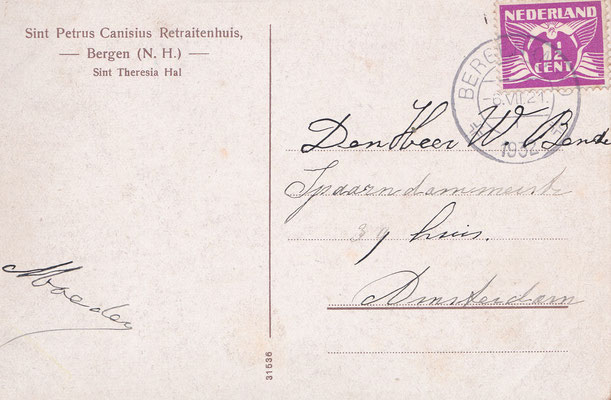 Sint Petrus Canisius Retraitenhuis,
— Bergen (N. H.) —
Sint Theresia Hal
NEDERLAND
1½
CENT
BERG
6.VII.21
1932
Den Heer W. Bende
Spaarndammerstr
39 huis.
Amsterdam
Moeder
31536